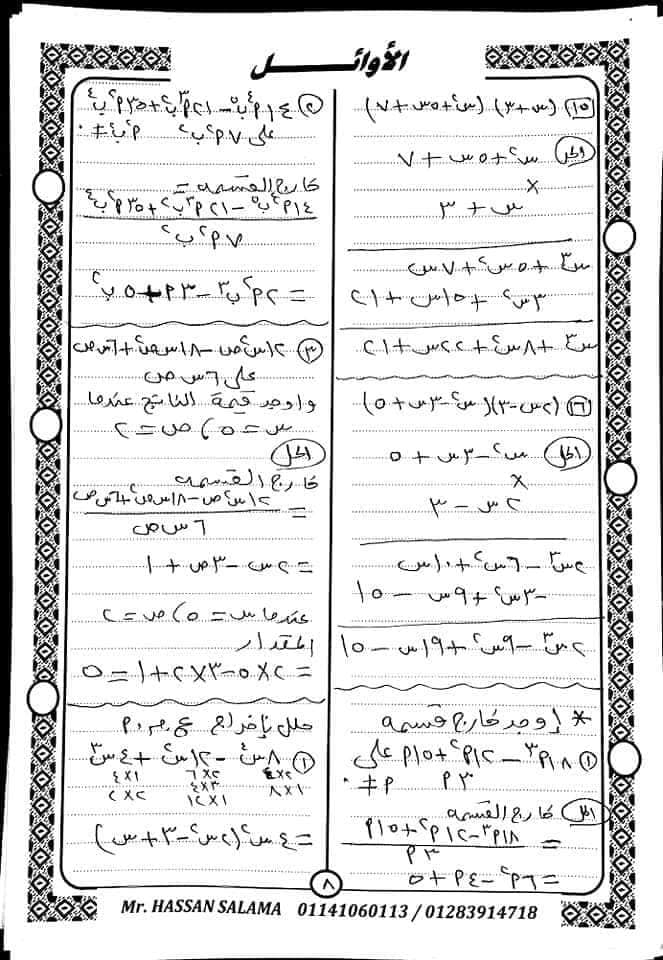 الأوائل
١٥ (س + ٣) (س² + ٥س + ٧)
الحل س² + ٥س + ٧
×
س + ٣
س³ + ٥س² + ٧س
٣س² + ١٥س + ٢١
س³ + ٨س² + ٢٢س + ٢١
١٦ (٢س - ٣)(س² - ٣س + ٥)
الحل س² - ٣س + ٥
×
٢س - ٣
٢س³ - ٦س² + ١٠س
-٣س² + ٩س - ١٥
٢س³ - ٩س² + ١٩س - ١٥
* إوجد خارج قسمة
١ ١٨م³ - ١٢م² + ١٥م على
٣م م ≠ ٠
الحل خارج القسمة
= ١٨م³ - ١٢م² + ١٥م
٣م
= ٦م² - ٤م + ٥
٢ ١٤م²ب⁵ - ٢١م³ب² + ٣٥م²ب⁴
على ٧م²ب² م، ب ≠ ٠
خارج القسمة =
١٤م²ب⁵ - ٢١م³ب² + ٣٥م²ب⁴
٧م²ب²
= ٢م²ب³ - ٣م + ٥ب²
٣ ١٢س²ص - ١٨س ص² + ٦س ص
على ٦س ص
واوجد قيمة الناتج عندما
س = ٥، ص = ٢
الحل
خارج القسمة
= ١٢س²ص - ١٨س ص² + ٦س ص
٦س ص
= ٢س - ٣ص + ١
عندما س = ٥، ص = ٢
المقدار
= ٢×٥ - ٣×٢ + ١ = ٥
حلل بإخراج ع.م.م
١ ٨س⁴ - ١٢س² + ٤س³
٤×٢ ٦×٢ ٤×١
٨×١ ٤×٣ ٢×٢
١٢×١
= ٤س² (٢س² - ٣ + س)
٨
Mr. HASSAN SALAMA 01141060113 / 01283914718